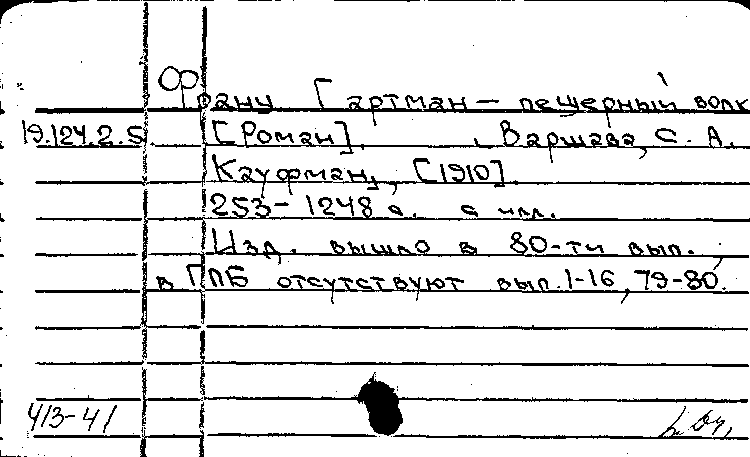 Франц Гартман — пещерный волк
19.124.2.5. [Роман]. Варшава, С. А.
Кауфман, [1910].
253-1248 с. с илл.
Изд. вышло в 80-ти вып.,
в ГПБ отсутствуют вып. 1-16, 79-80.
413-41